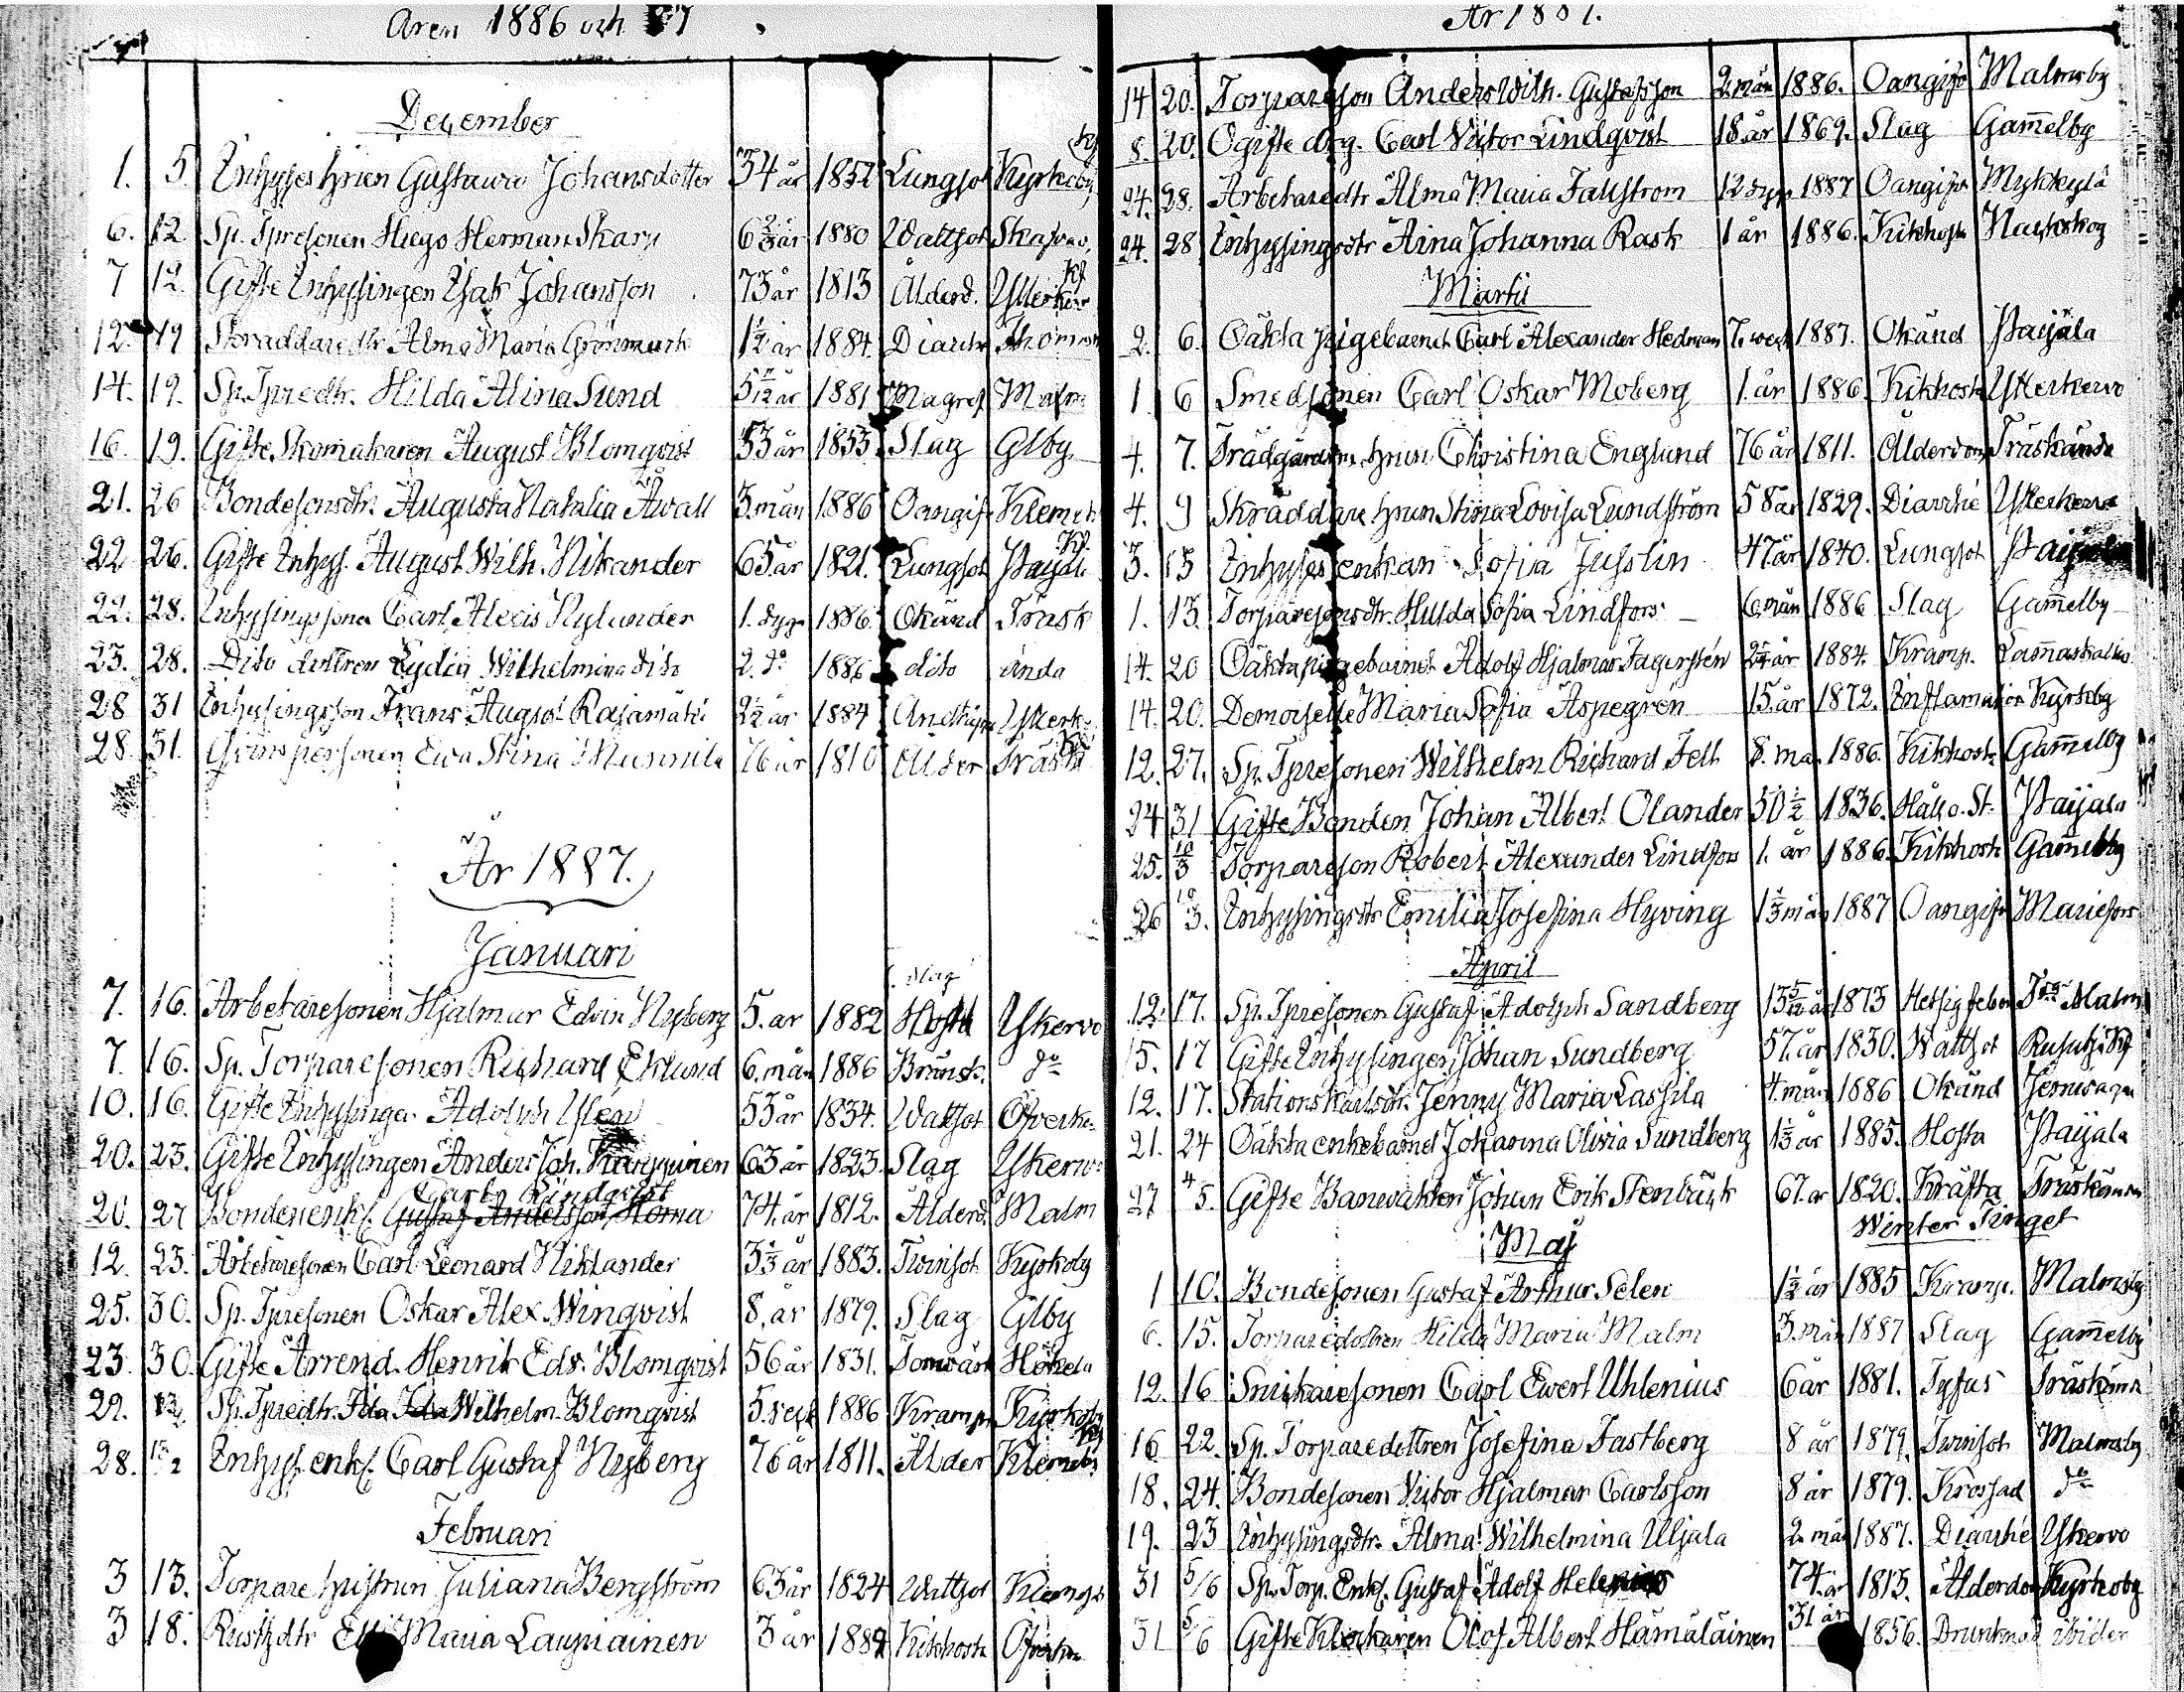 Åren 1886 och 87
December
1. 5. Inhyses hrun Gustava Johansdotter 54 år 1832 Lungsot Kyrkoby
6. 12 Sp. Tpresonen Hugo Herman Skarp 6 2/3 år 1880 Wattsot
7 12. Gifte Inhysingen Isak Johansson 73 år 1813 Ålderd.
12. 19 Skräddaredtr Alma Maria Grönmark 1 1/2 år 1884.
14. 19. Sp. Tpredtr. Hilda Alina Sund 5 år 1881 Malm
16. 19. Gifte Skomakaren August Blomqvist 53 år 1833 Slag Glby
21. 26 Bondesonsdtr. Augusta Natalia Awall 3. mån 1886 Oangif
22 26. Gifte Inhys. August Wilh. Nikander 65. år 1821. Lungsot
22. 28. Inhysingssona Carl Alexis Nylander 1. dyg 1886. Okänd Träsk
23. 28. Dito dottren Lydia Wilhelmina dito 2. do 1886 dito ända
28 31 Inhysingsson Frans August Rajamäki 2 1/2 år 1884
28. 31. Ewa Stina 76 år 1810 Ålder Träsk
År 1887.
Januari
Slag
7. 16. Arbetaresonen Hjalmar Edvin Nyberg 5. år 1882 Ykervo
7. 16. Sp. Torparesonen Richard Eklund 6. mån 1886 Brunsk. do
10. 16. Gifte Inhysinge Adolph 53 år 1834. Wattsot Öfverke
20. 23. Gifte Inhysingen Anders Joh. Karppinen 63 år 1823. Slag Ykervo
Carl Lindqvist
20. 27 Bondeenkl. Gustaf Andersson Homa 74. år 1812. Ålderd. Malm
12. 23. Arbetaresonen Carl Leonard Niklander 3 1/3 år 1883. Twinsot Kyrkoby
25. 30. Sp. Tpresonen Oskar Alex. Winqvist 8. år 1879. Slag Glby
23. 30. Gifte Arrend. Henrik Edv. Blomqvist 56 år 1831.
29. Sp. Tpredtr. Ida Wilhelm. Blomqvist 5. 1886 Kramp Kyrkoby
28. Inhys. enkl. Carl Gustaf Nyberg 76 år 1811. Ålder
Februari
3 13. Torpare hustrun Juliana Bergström 63 år 1824 Wattsot
3 18. Rusth.dtr Maria Laupiainen 3 år Kikhosta
År 1887.
14 20. Torpareson Anders Wilh. Gustafsson 2 mån 1886. Oangifv Malmsby
8. 20. Ogifte drg. Carl Victor Lindqvist 18 år 1869. Slag Gamelby
24. 28. Arbetaredtr Alma Maria Fallström 12 dyg 1887 Oangifv
24. 28 Inhysingsdtr Aina Johanna Rask 1 år 1886. Kikhosta
Martii
2. 6. Oäkta pigebarnet Carl Alexander Hedman 7. 1887. Okänd Paijala
1 6 Smedsonen Carl Oskar Moberg 1. år 1886. Kikhosta Ykerkervo
4. 7. Trädgårdsm. hrun Christina Englund 76 år 1811. Ålderdom Träskända
4. 9 Skräddare hrun Stina Lovisa Lundström 58 år 1829. Diarrhé
3. 13 Inhyses enkan Sofia Jusslin 47. år 1840. Lungsot
1. 13. Torparesonsdtr. Hulda Sofia Lindfors 6. mån 1886 Slag Gamelby
14. 20 Oäkta pigebarnet Adolf Hjalmar Fagerstén 2 1/4 år 1884. Kramp.
14. 20. Demoiselle Maria Sofia Aspegren 15. år 1872. Inflamation Kyrkby
12. 27. Sp. Tpresonen Wilhelm Richard Felt 8. må 1886. Kikhost Gamelby
24 31 Gifte Bonden Johan Albert Olander 50 1/2 1836. Håll o. St. Paijala
25. 10/3 Torpareson Robert Alexander Lindfors 1. år 1886. Kikhost Gamelby
26 10/3. Inhysingsdtr Emilia Josefina Hyving 1 1/3 mån 1887 Oangifv Mariefors
April
12. 17. Sp. Tpresonen Gustaf Adolph Sandberg 13 5/12 år 1873 Hetsig feber Malm
15. 17 Gifte Inhysingen Johan Sundberg 57. år 1830. Wattsot
12. 17. Stationskarlsdtr. Jenny Maria Lassila 4. mån 1886 Okänd
21. 24 Oäkta enkebarnet Johanna Olivia Sundberg 1 1/3 år 1885. Hosta Paijala
27 4/5. Gifte Banwakten Johan Erik Stenbäck 67. år 1820. Kräfta Träskända
Winter Tinget
Maj
1 10. Bondesonen Gustaf Arthur Selen 1 1/2 år 1885 Kramp. Malmsby
6. 15. Torparedottren Hilda Maria Malm 3. mån 1887 Slag Gamelby
12. 16 Snickaresonen Carl Evert Uhlenius 6 år 1881. Tyfus Träskända
16 22. Sp. Torparedottren Josefina Fastberg 8 år 1879. Twinsot Malmsby
18. 24. Bondesonen Victor Hjalmar Carlsson 8 år 1879. Krossad do
19. 23 Inhysingsdtr. Alma Wilhelmina Uljala 2. mån 1887. Diarrhé Ykervo
31 5/6 Sp. Torp. Enkl. Gustaf Adolf Helenius 74. år 1813. Ålderdom Kyrkoby
31 5/6 Gifte Klockaren Olof Albert Hämäläinen 31 år 1856.